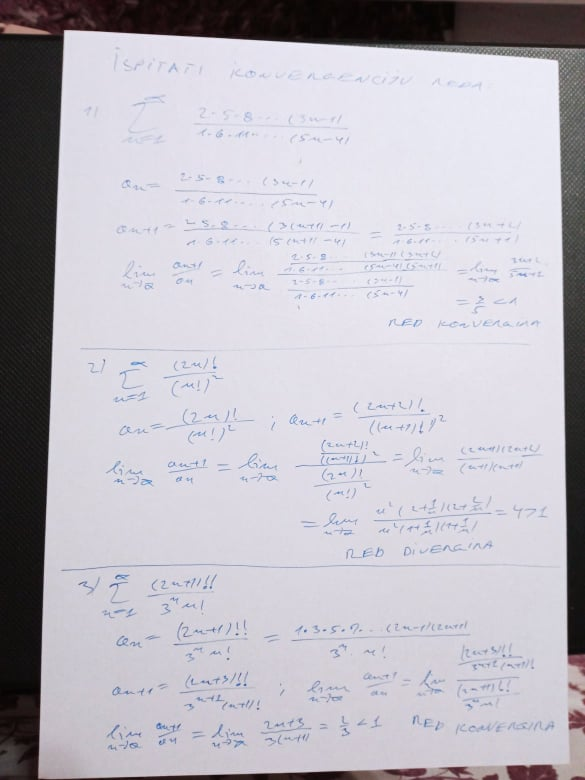 ISPITATI KONVERGENCIJU REDA:
1) ∑_{n=1}^{∞} (2·5·8···(3n-1))/(1·6·11···(5n-4))
a_n = (2·5·8···(3n-1))/(1·6·11···(5n-4))
a_{n+1} = (2·5·8···(3(n+1)-1))/(1·6·11···(5(n+1)-4)) = (2·5·8···(3n+2))/(1·6·11···(5n+1))
lim_{n→∞} a_{n+1}/a_n = lim_{n→∞} ((2·5·8···(3n-1)(3n+2))/(1·6·11···(5n-4)(5n+1)))/((2·5·8···(3n-1))/(1·6·11···(5n-4))) = lim_{n→∞}
= 3/5 < 1
RED KONVERGIRA
2) ∑_{n=1}^{∞} (2n)!/(n!)^2
a_n = (2n)!/(n!)^2 ; a_{n+1} = (2n+2)!/((n+1)!)^2
lim_{n→∞} a_{n+1}/a_n = lim_{n→∞} ((2n+2)!/((n+1)!)^2)/((2n)!/(n!)^2) = lim_{n→∞} ((2n+1)(2n+2))/((n+1)(n+1))
= lim_{n→∞} (n^2(2+1/n)(2+2/n))/(n^2(1+1/n)(1+1/n)) = 4 > 1
RED DIVERGIRA
3) ∑_{n=1}^{∞} (2n+1)!!/(3^n n!)
a_n = (2n+1)!!/(3^n n!) = (1·3·5·7···(2n-1)(2n+1))/(3^n · n!)
a_{n+1} = (2n+3)!!/(3^{n+1}(n+1)!) ; lim_{n→∞} a_{n+1}/a_n = lim_{n→∞} ((2n+3)!!/(3^{n+1}(n+1)!))/((2n+1)!!/(3^n n!))
lim_{n→∞} a_{n+1}/a_n = lim_{n→∞} (2n+3)/(3(n+1)) = 2/3 < 1 RED KONVERGIRA